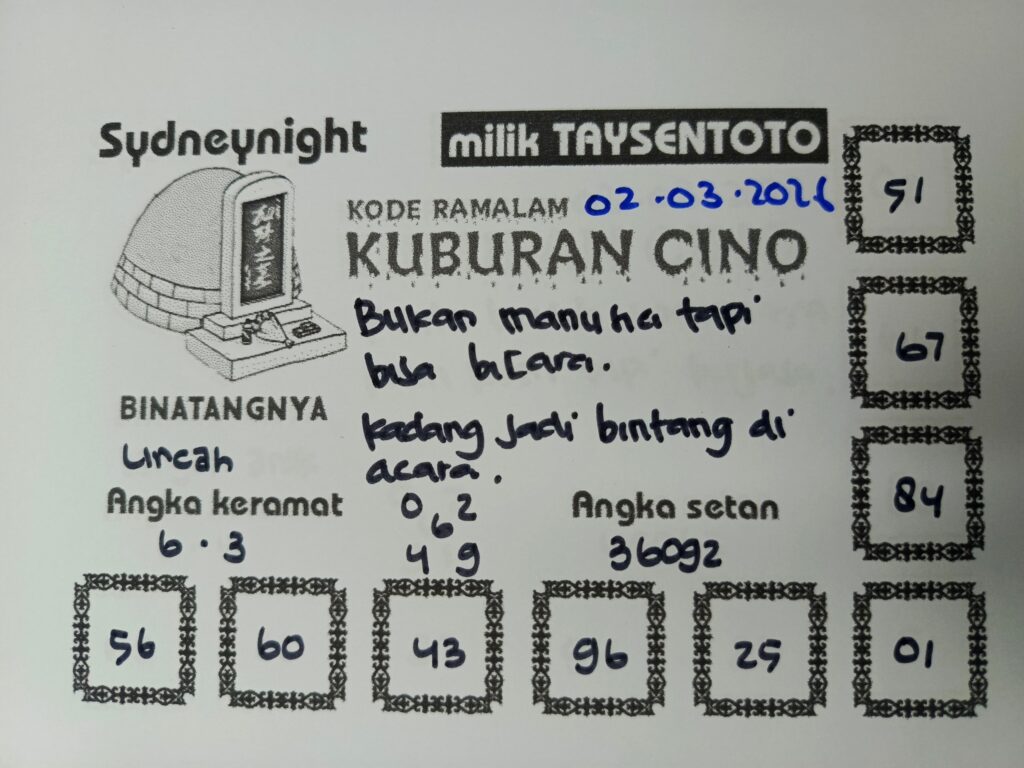 Sydneynight
milik TAYSENTOTO
51
KODE RAMALAM 02.03.2026
KUBURAN CINO
Bukan manusia tapi
bisa bicara.
67
BINATANGNYA
kadang jadi bintang di
acara.
84
Angka keramat
0 2
6
4 9
Angka setan
6.3
36092
56
60
43
96
25
01